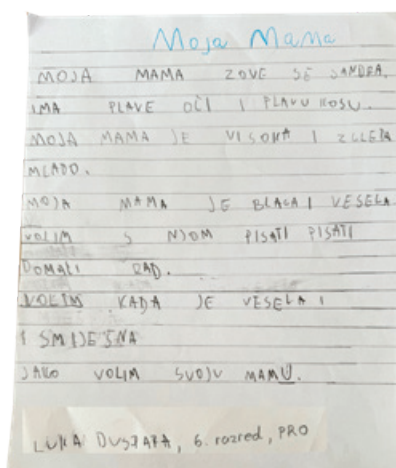 Moja Mama
MOJA MAMA ZOVE SE SANDRA.
IMA PLAVE OČI I PLAVU KOSU.
MOJA MAMA JE VISOKA I IZGLEDA
MLADO.
MOJA MAMA JE BLAGA I VESELA
VOLIM S NJOM PISATI PISATI
DOMAĆI RAD.
VOLIM KADA JE VESELA I
I SMIJEŠNA
JAKO VOLIM SVOJU MAMU.
LUKA, 6. razred, PRO